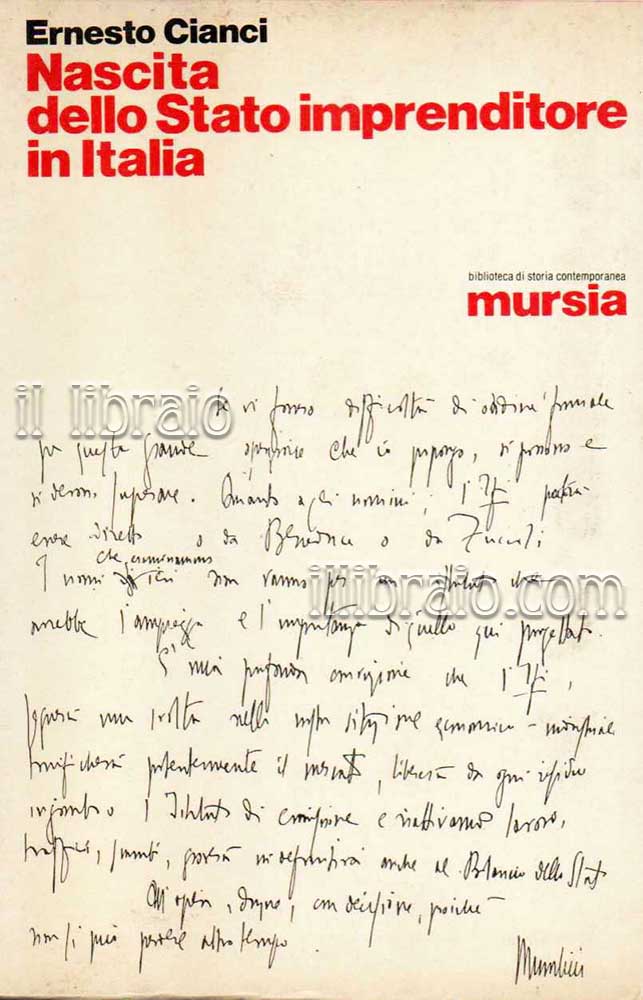 Ernesto Cianci
Nascita
dello Stato imprenditore
in Italia
biblioteca di storia contemporanea
mursia
il libraio
Se vi fossero difficoltà di ordine formale
per questa grande operazione che io propongo, si possono e
si devono superare. Quanto agli uomini, l'
essere diretto o da Beneduce o da
I nomi che non vanno per un istituto che
illibraio.com
avrebbe l'ampiezza e l'importanza di quello qui progettato.
E' mia profonda convinzione che l'
segnerà una svolta nella nostra situazione economico-industriale
potentemente il mercato, libererà da ogni residuo
ingombro l'Istituto di emissione e riattivando lavoro,
traffici, scambi, gioverà in definitiva anche al Bilancio dello Stato
All'opera, dunque, con decisione, poiché
non si può perdere altro tempo.
Mussolini